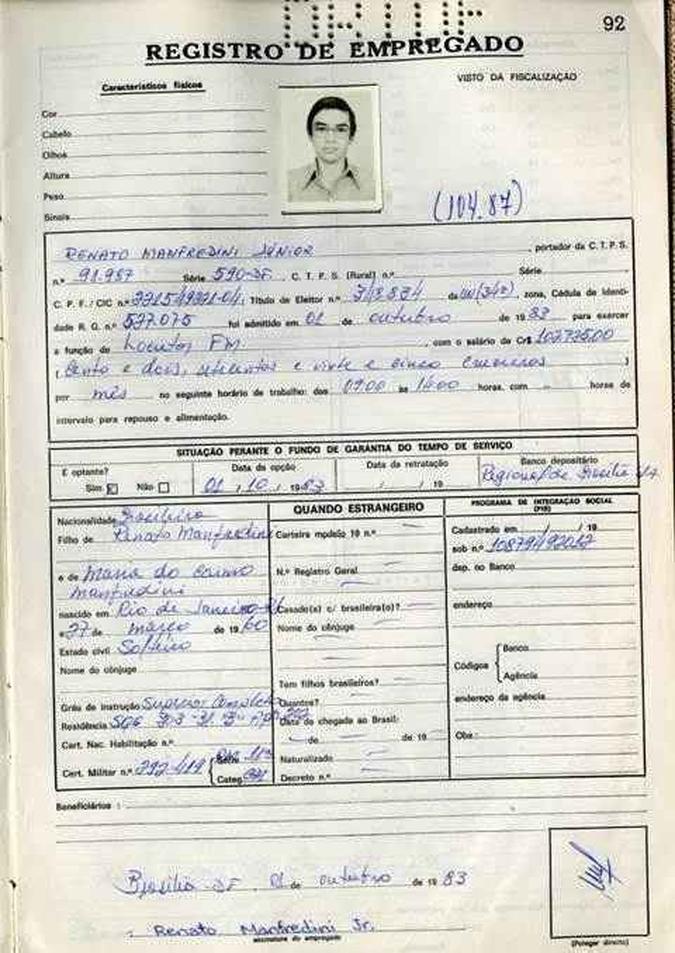 92
REGISTRO DE EMPREGADO
Característicos físicos
VISTO DA FISCALIZAÇÃO
Cor
Cabelo
Olhos
Altura
Peso
Sinais
(104.87)
RENATO MANFREDINI JÚNIOR, portador da C. T. P. S.
n.º 91.987 Série 590-DF, C. T. P. S. (Rural) n.º Série
C. P. F./CIC n.º Título de Eleitor n.º zona, Cédula de Identi-
dade R. G. n.º 527.075 foi admitido em 01 de outubro de 19 83 para exercer
a função de Locutor FM, com o salário de Cr$ 102.725,00
(cento e dois, setecentos e vinte e cinco cruzeiros)
por mês no seguinte horário de trabalho: das 09:00 às 14:00 horas, com - horas de
intervalo para repouso e alimentação.
SITUAÇÃO PERANTE O FUNDO DE GARANTIA DO TEMPO DE SERVIÇO
É optante? Data da opção Data da retratação Banco depositário
Sim Não 01 / 10 / 1983 / / 19 Regional de Brasília S/A
Nacionalidade Brasileira
Filho de Renato Manfredini
e de Maria do Carmo
Manfredini
nascido em Rio de Janeiro-RJ
a 27 de março de 19 60
Estado civil Solteiro
Nome do cônjuge
Gráu de instrução Superior Completo
Residência SQS 303
Cart. Nac. Habilitação n.º
Cert. Militar n.º 292.419 Série
Categ.
QUANDO ESTRANGEIRO
Carteira modelo 19 n.º
N.º Registro Geral
Casado(a) c/ brasileira(o)?
Nome do cônjuge
Tem filhos brasileiros?
Quantos?
Data de chegada ao Brasil:
de de 19
Naturalizado
Decreto n.º
PROGRAMA DE INTEGRAÇÃO SOCIAL
(PIS)
Cadastrado em / / 19
sob n.º 10879492012
dep. no Banco
endereço
Códigos Banco
Agência
endereço da agência
Obs:
Beneficiários :
Brasília-DF, 01 de outubro de 19 83
Renato Manfredini Jr.
assinatura do empregado
(Polegar direito)